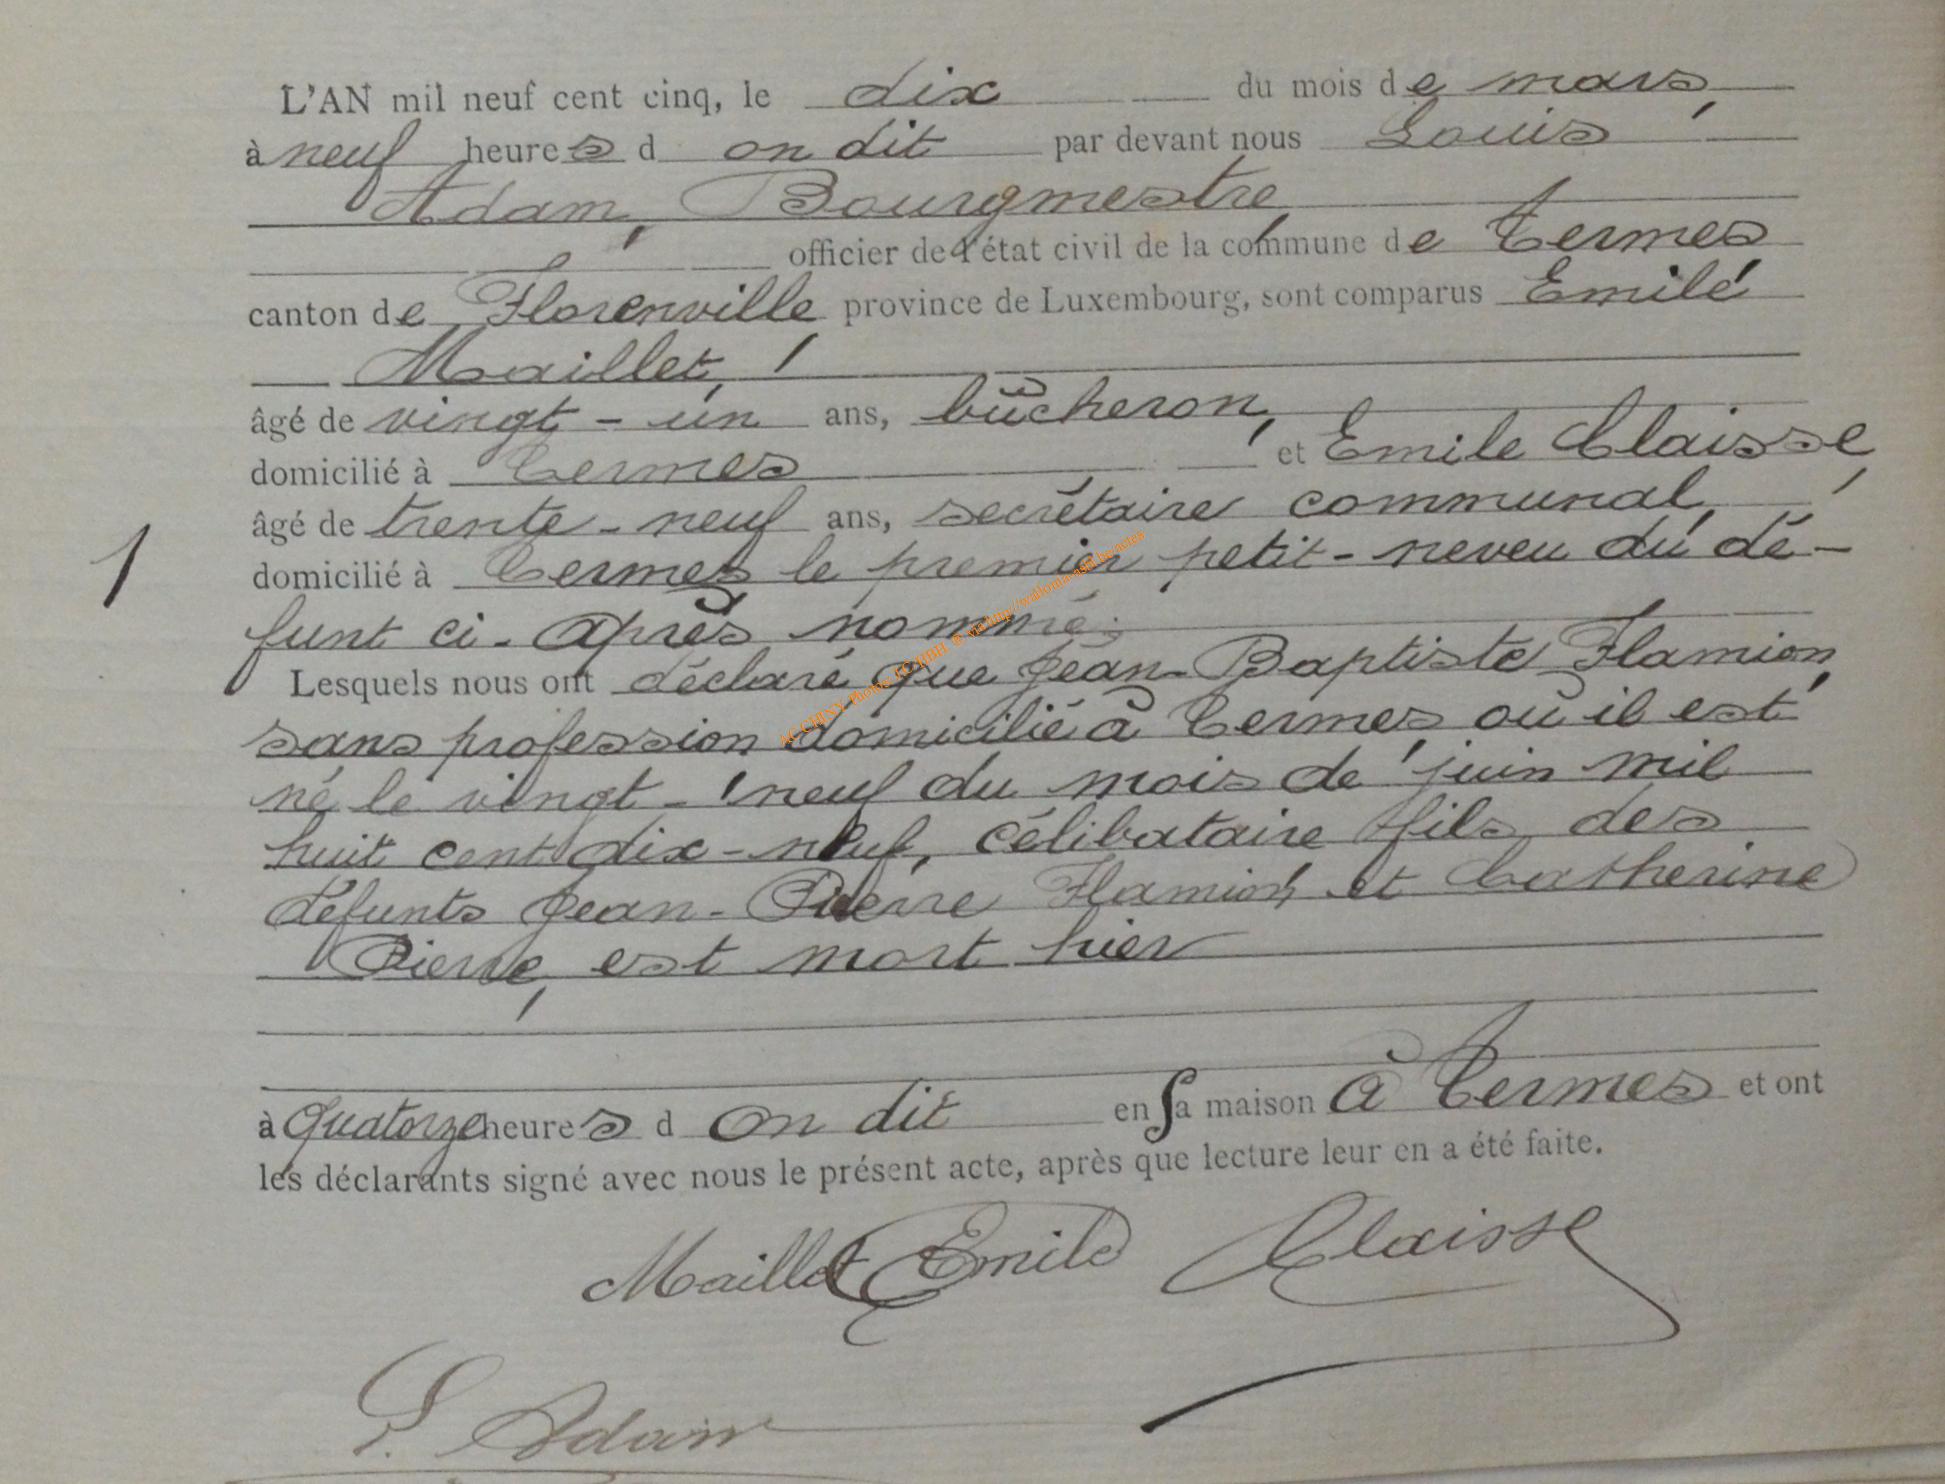 L'AN mil neuf cent cinq, le dix du mois de mars,
à neuf heures d on dit par devant nous Louis
Adam, Bourgmestre,
officier de l'état civil de la commune de Termes
canton de Florenville province de Luxembourg, sont comparus Emile
Maillet,
âgé de vingt-un ans, bûcheron,
domicilié à Termes et Emile Claisse,
âgé de trente-neuf ans, secrétaire communal,
domicilié à Termes le premier petit-neveu du dé-
funt ci-après nommé;
Lesquels nous ont déclaré que Jean-Baptiste Flamion,
sans profession domicilié à Termes, où il est
né le vingt-neuf du mois de juin mil
huit cent dix-neuf, célibataire fils des
défunts Jean-Pierre Flamion et Catherine
Pierre, est mort hier
à quatorze heures d on dit en sa maison à Termes et ont
les déclarants signé avec nous le présent acte, après que lecture leur en a été faite.
Maillet Emile Claisse
L. Adam
1